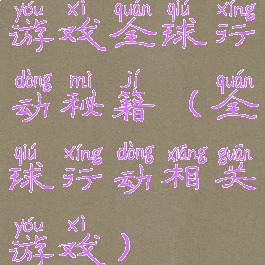 yóu xì quán qiú xíng
游戏全球行
dòng mì jí quán
动秘籍(全
qiú xíng dòng xiāng guān
球行动相关
yóu xì
游戏)